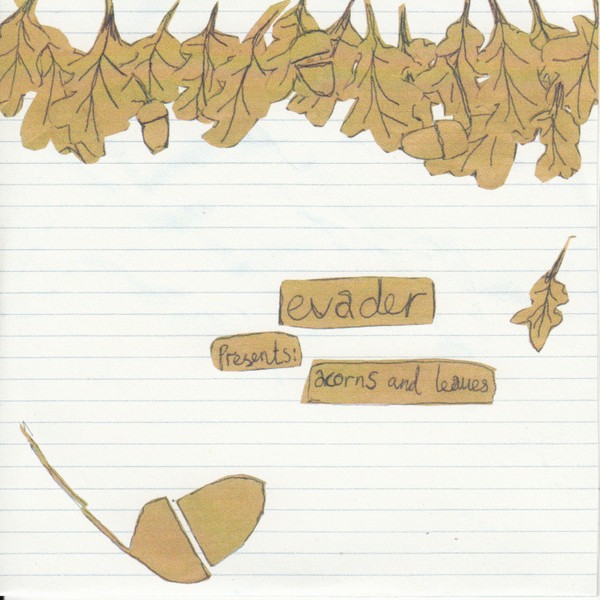 evader
Presents:
acorns and leaves